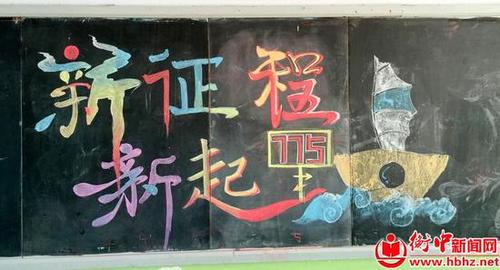 新征程
新起
775
衡中新闻网
www.hbhz.net